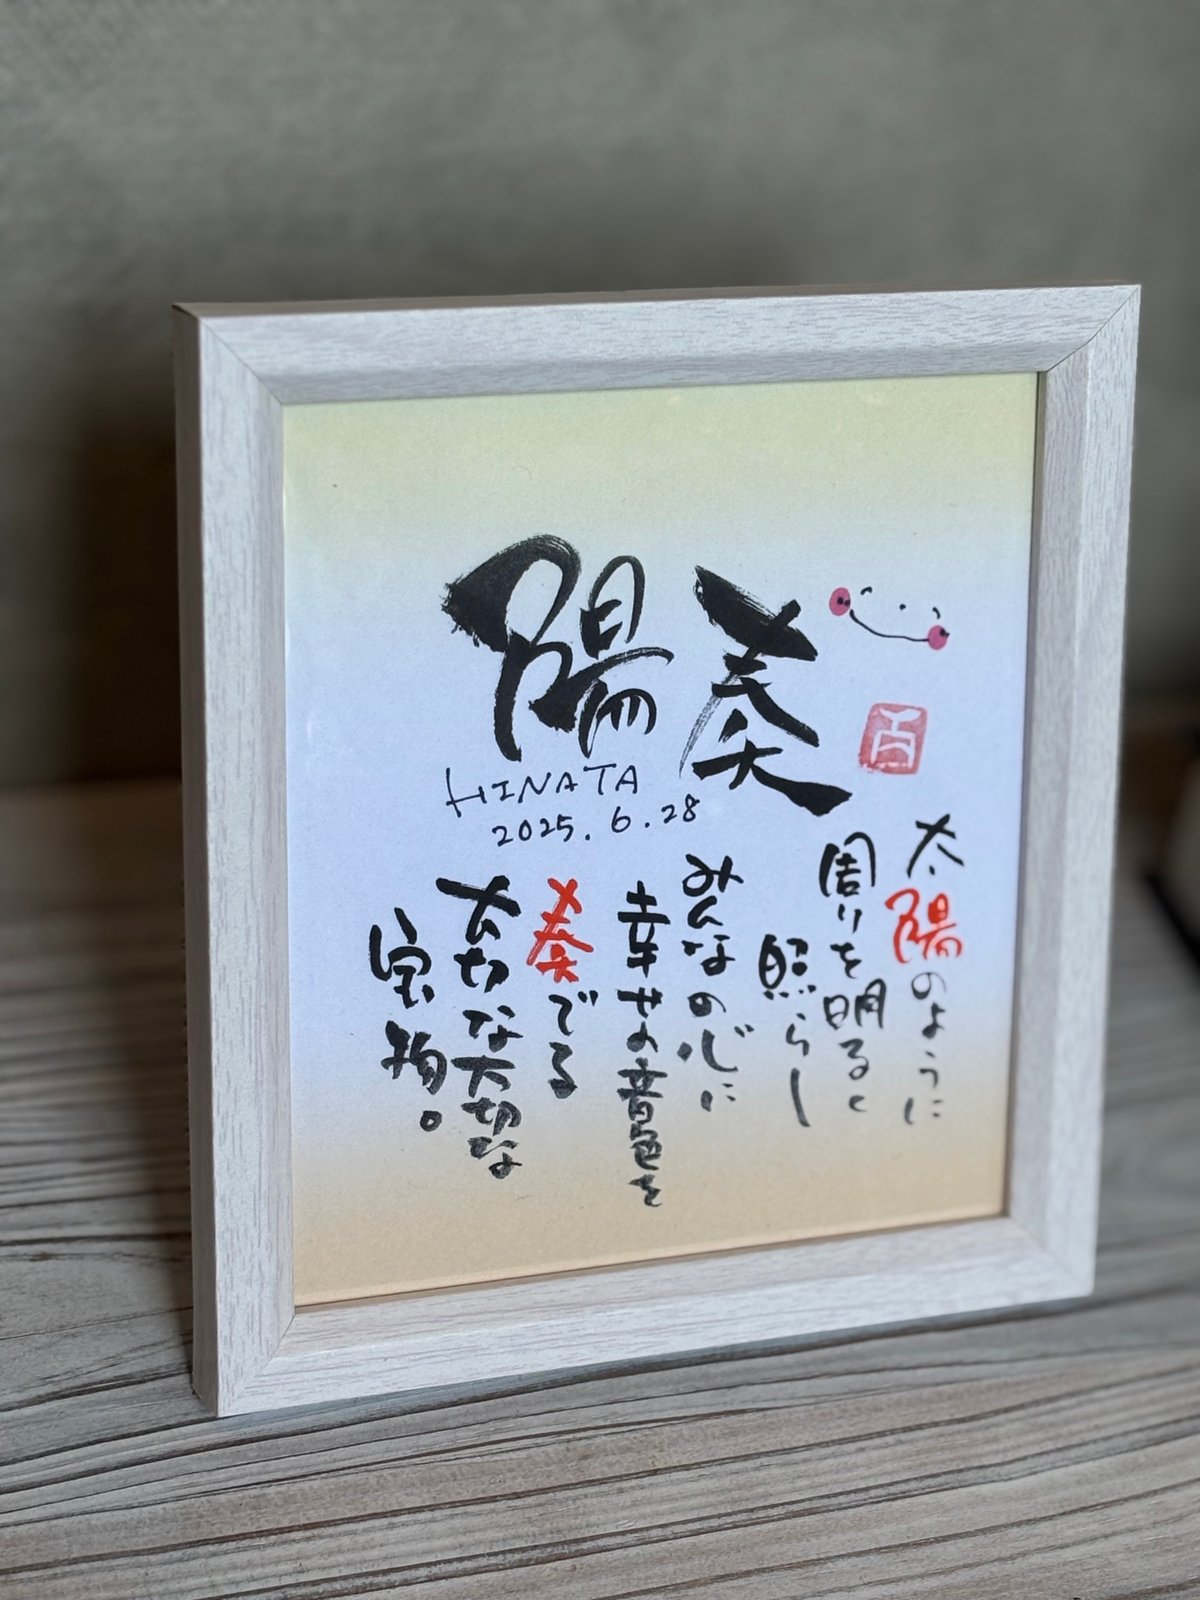 陽奏
HINATA
2025.6.28
太陽のように
周りを明るく
照らし
みんなの心に
幸せの音色を
奏でる
大切な大切な
宝物。
百